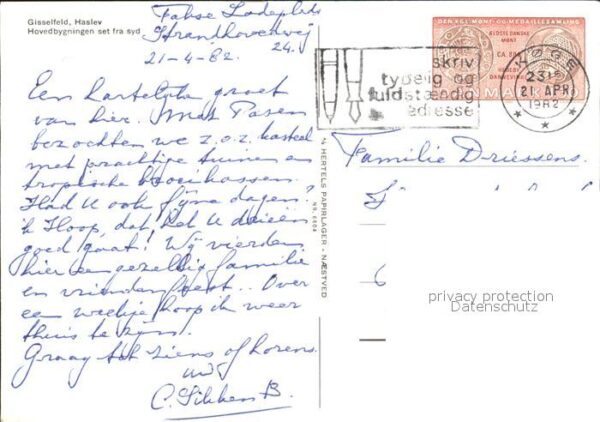 Gisselfeld, Haslev
Hovedbygningen set fra syd
Fakse Ladeplads
Strandhovedvej
24.
21-4-82
Een hartelijke groet
van hier. Met Pasen
bezochten we z.o.z. kasteel
met prachtige tuinen en
tropische broeikassen.
Had U ook fijne dagen?
ik Hoop, dat het U drieën
goed gaat! Wij vierden
hier een gezellig familie
en vriendenfeest. Over
een weekje hoop ik weer
thuis te zijn.
Graag tot ziens of horens.
C. Sikkens B.
¾ HERTELS PAPIRLAGER - NÆSTVED
NR. 6804
DEN KGL. MØNT- OG MEDAILLESAMLING
ÆLDSTE DANSKE
MØNT
CA. 80
DANMARK
skriv
tydelig og
fuldstændig
adresse
KØGE
21 APR
1982
Familie Driessens.
privacy protection
Datenschutz